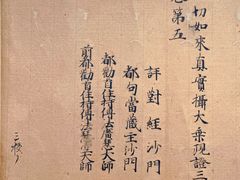 切如來真實攝大乘現證三
第五
評對經沙門
都句當藏主沙門
都勸首住持傳法慧大師
前都勸首住持傳法慧大師
三校了